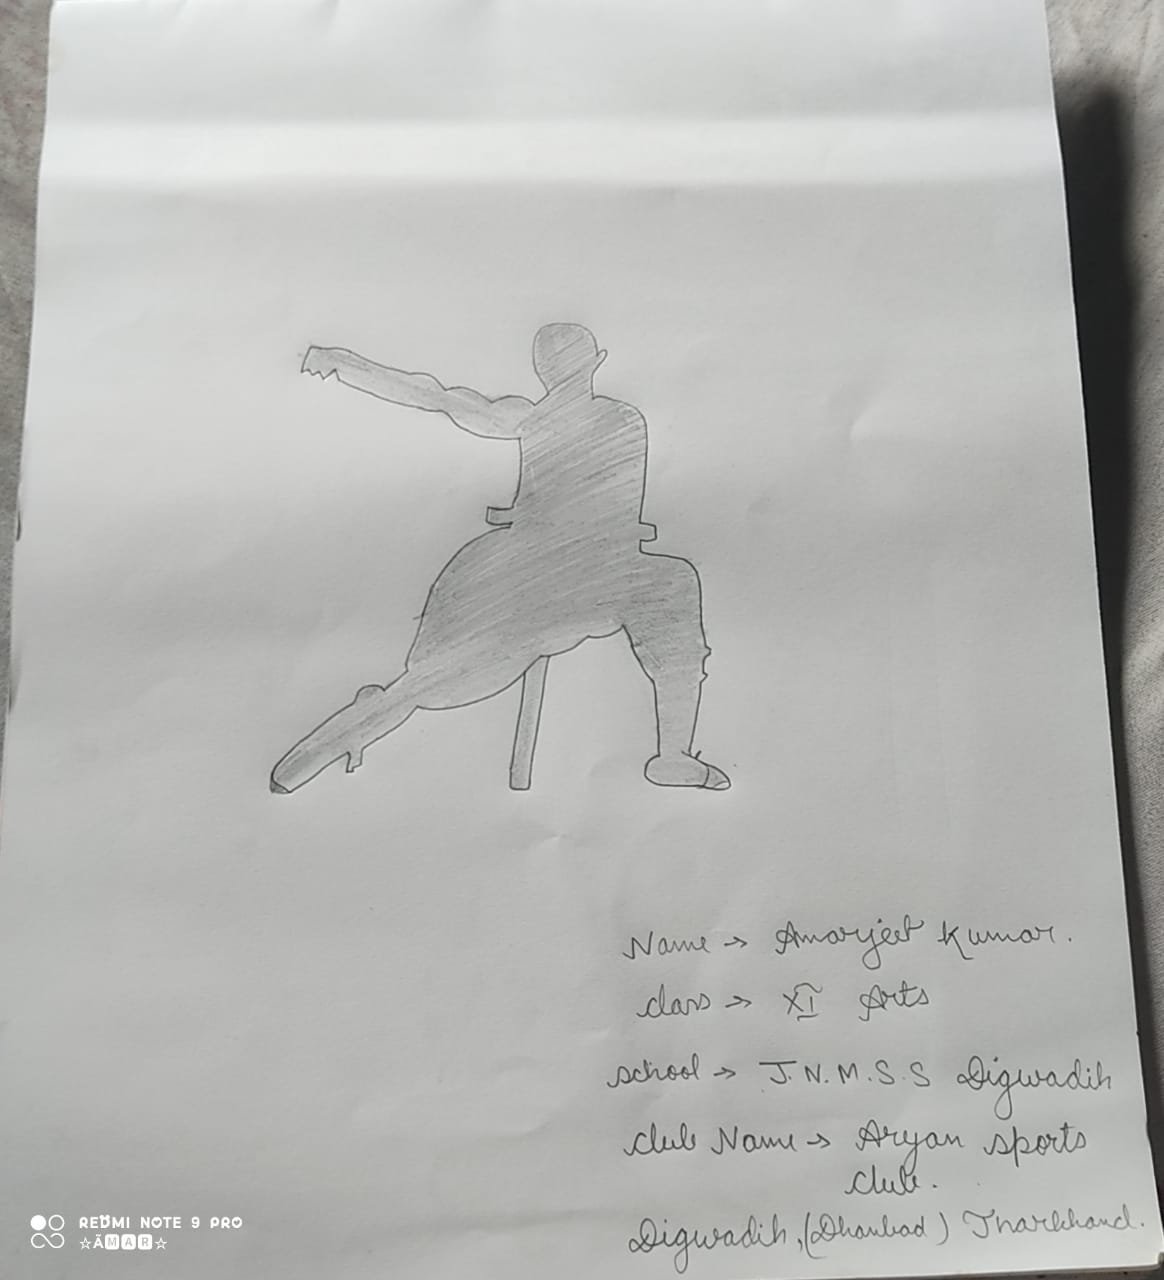 Name → Amarjeet Kumar.
class → XI Arts
school → J.N.M.S.S Digwadih
club Name → Aryan sports
club.
Digwadih, (Dhanbad) Jharkhand.
REDMI NOTE 9 PRO
☆ÃMAR☆